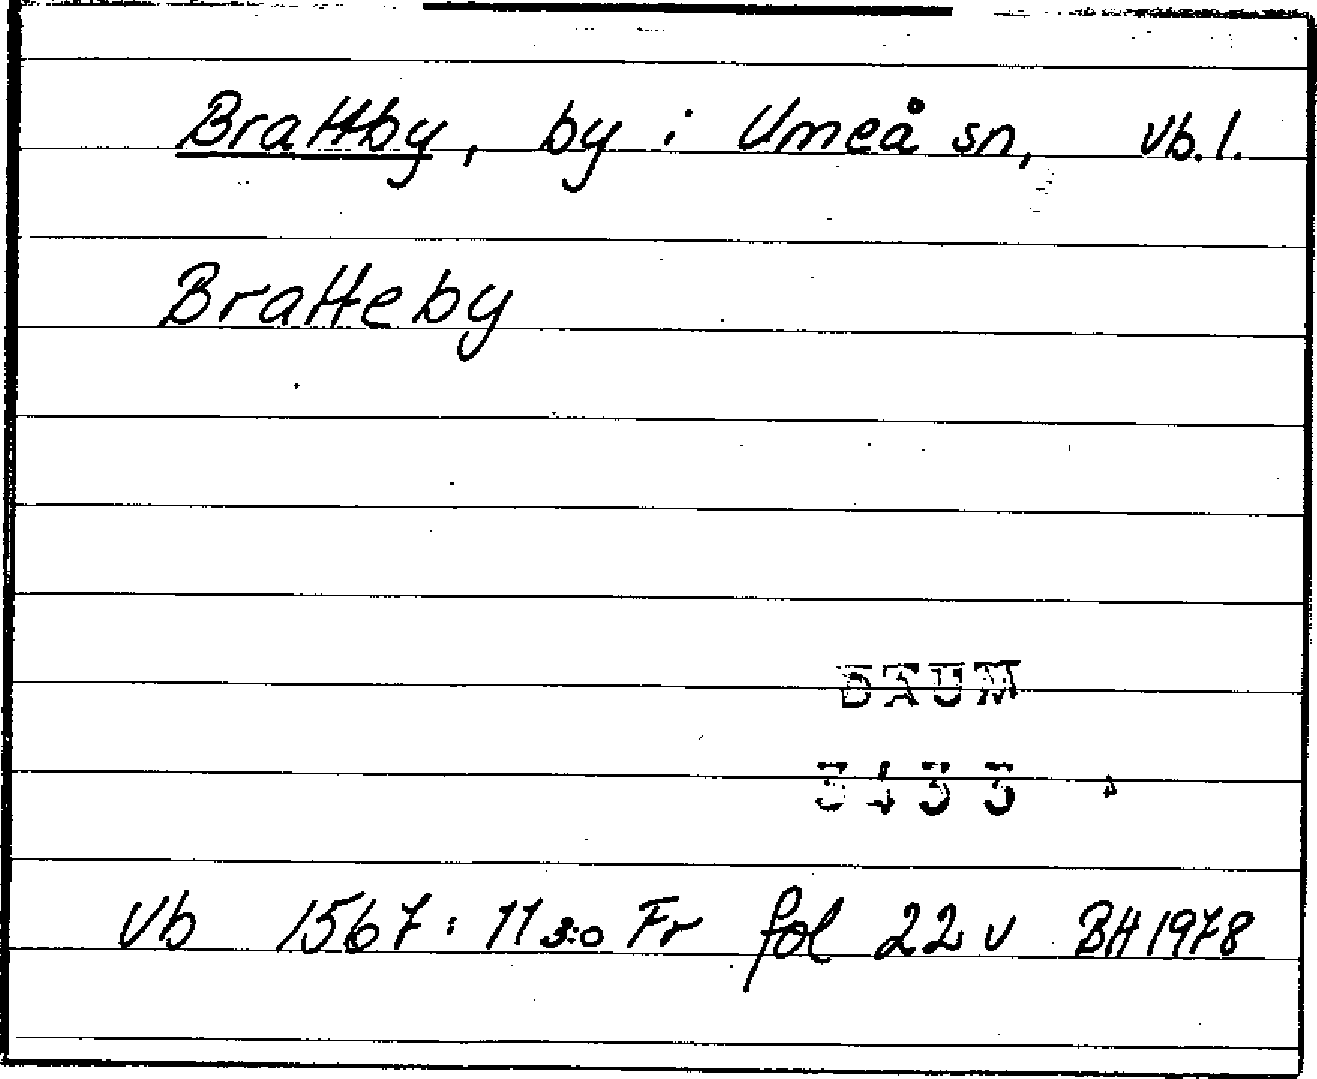 Brattby, by i Umeå sn, Vb.l.
Bratteby
DAUM
Vb 1567:11 3:0 Fr fol 22 v BH 1978